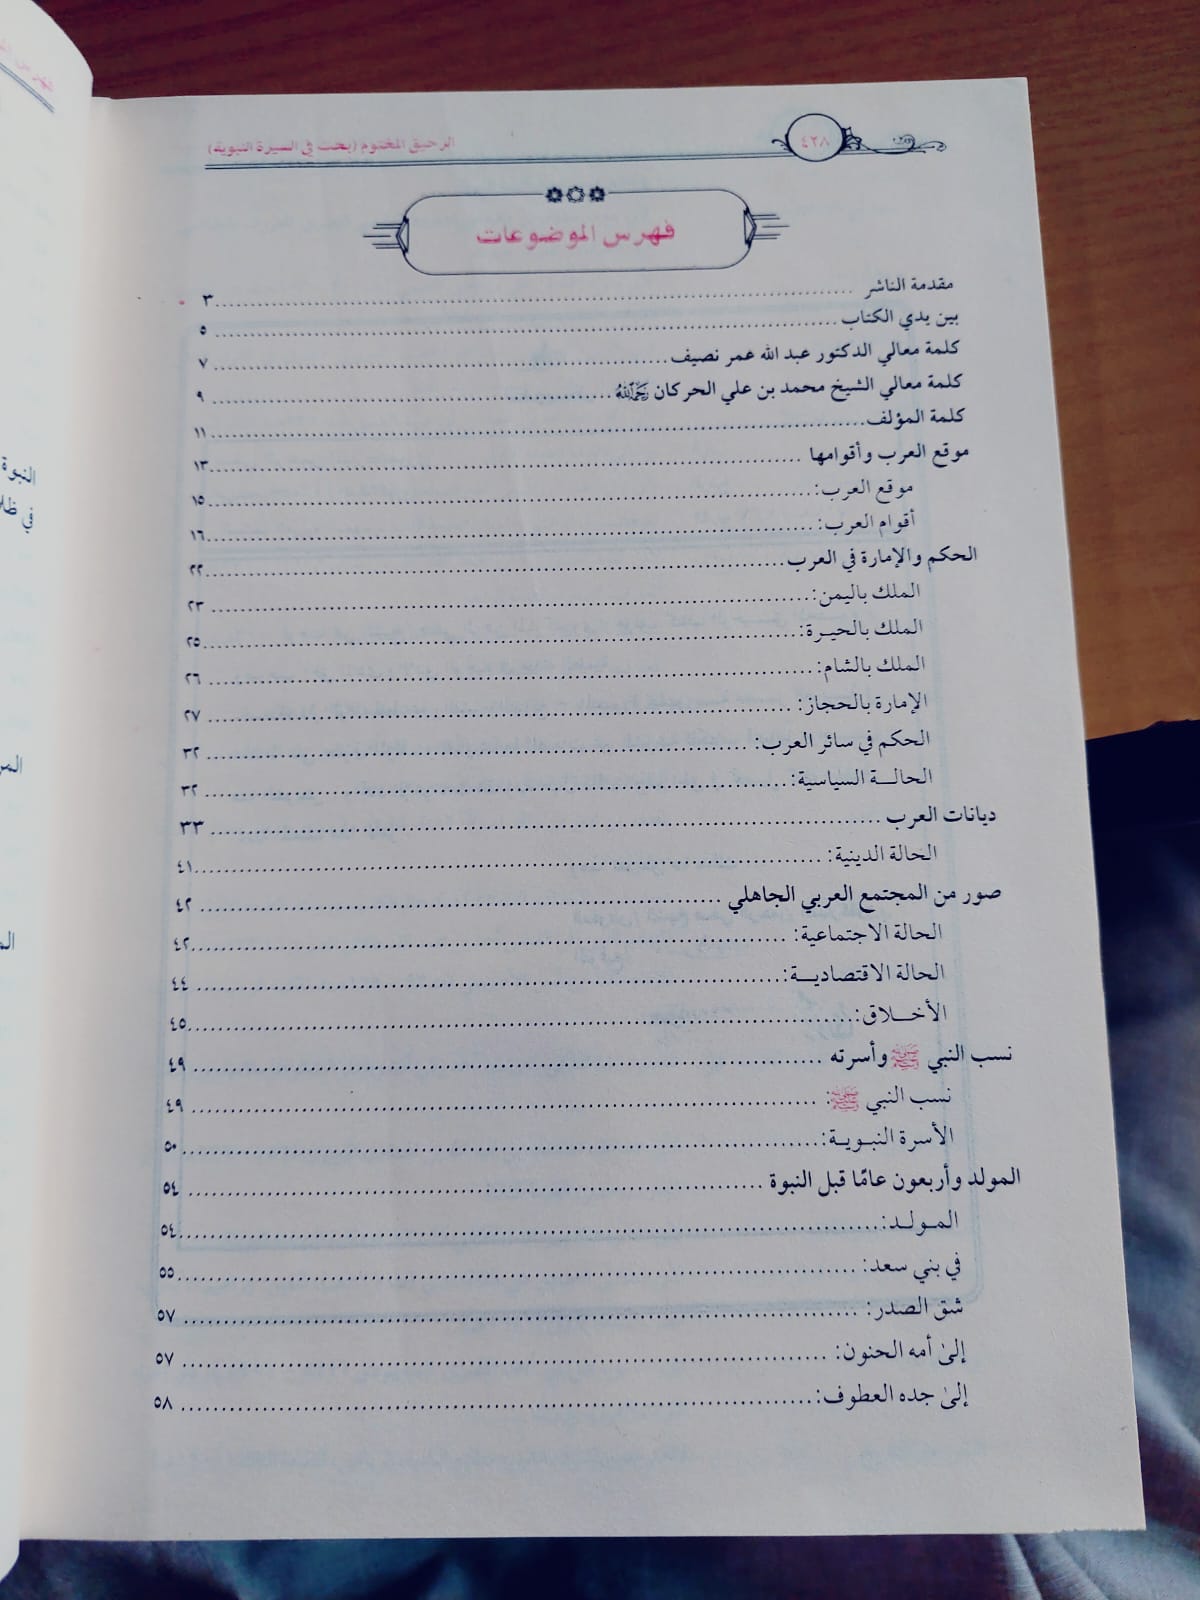 الرحيق المختوم (بحث في السيرة النبوية)
٤٢٨
فهرس الموضوعات
مقدمة الناشر ........ ٣
بين يدي الكتاب ........ ٥
كلمة معالي الدكتور عبد الله عمر نصيف ........ ٧
كلمة معالي الشيخ محمد بن علي الحركان رحمه الله ........ ٩
كلمة المؤلف ........ ١١
موقع العرب وأقوامها ........ ١٣
موقع العرب: ........ ١٥
أقوام العرب: ........ ١٦
الحكم والإمارة في العرب ........ ٢٢
الملك باليمن: ........ ٢٣
الملك بالحيـرة: ........ ٢٥
الملك بالشام: ........ ٢٦
الإمارة بالحجاز: ........ ٢٧
الحكم في سائر العرب: ........ ٣٢
الحالـــة السياسية: ........ ٣٢
ديانات العرب ........ ٣٣
الحالة الدينية: ........ ٤١
صور من المجتمع العربي الجاهلي ........ ٤٢
الحالة الاجتماعية: ........ ٤٢
الحالة الاقتصاديــة: ........ ٤٤
الأخــلاق: ........ ٤٥
نسب النبي ﷺ وأسرته ........ ٤٩
نسب النبي ﷺ: ........ ٤٩
الأسرة النبـويـة: ........ ٥٠
المولد وأربعون عامًا قبل النبوة ........ ٥٤
المـولـد: ........ ٥٤
في بني سعد: ........ ٥٥
شق الصدر: ........ ٥٧
إلىٰ أمه الحنون: ........ ٥٧
إلىٰ جده العطوف: ........ ٥٨
النبوة